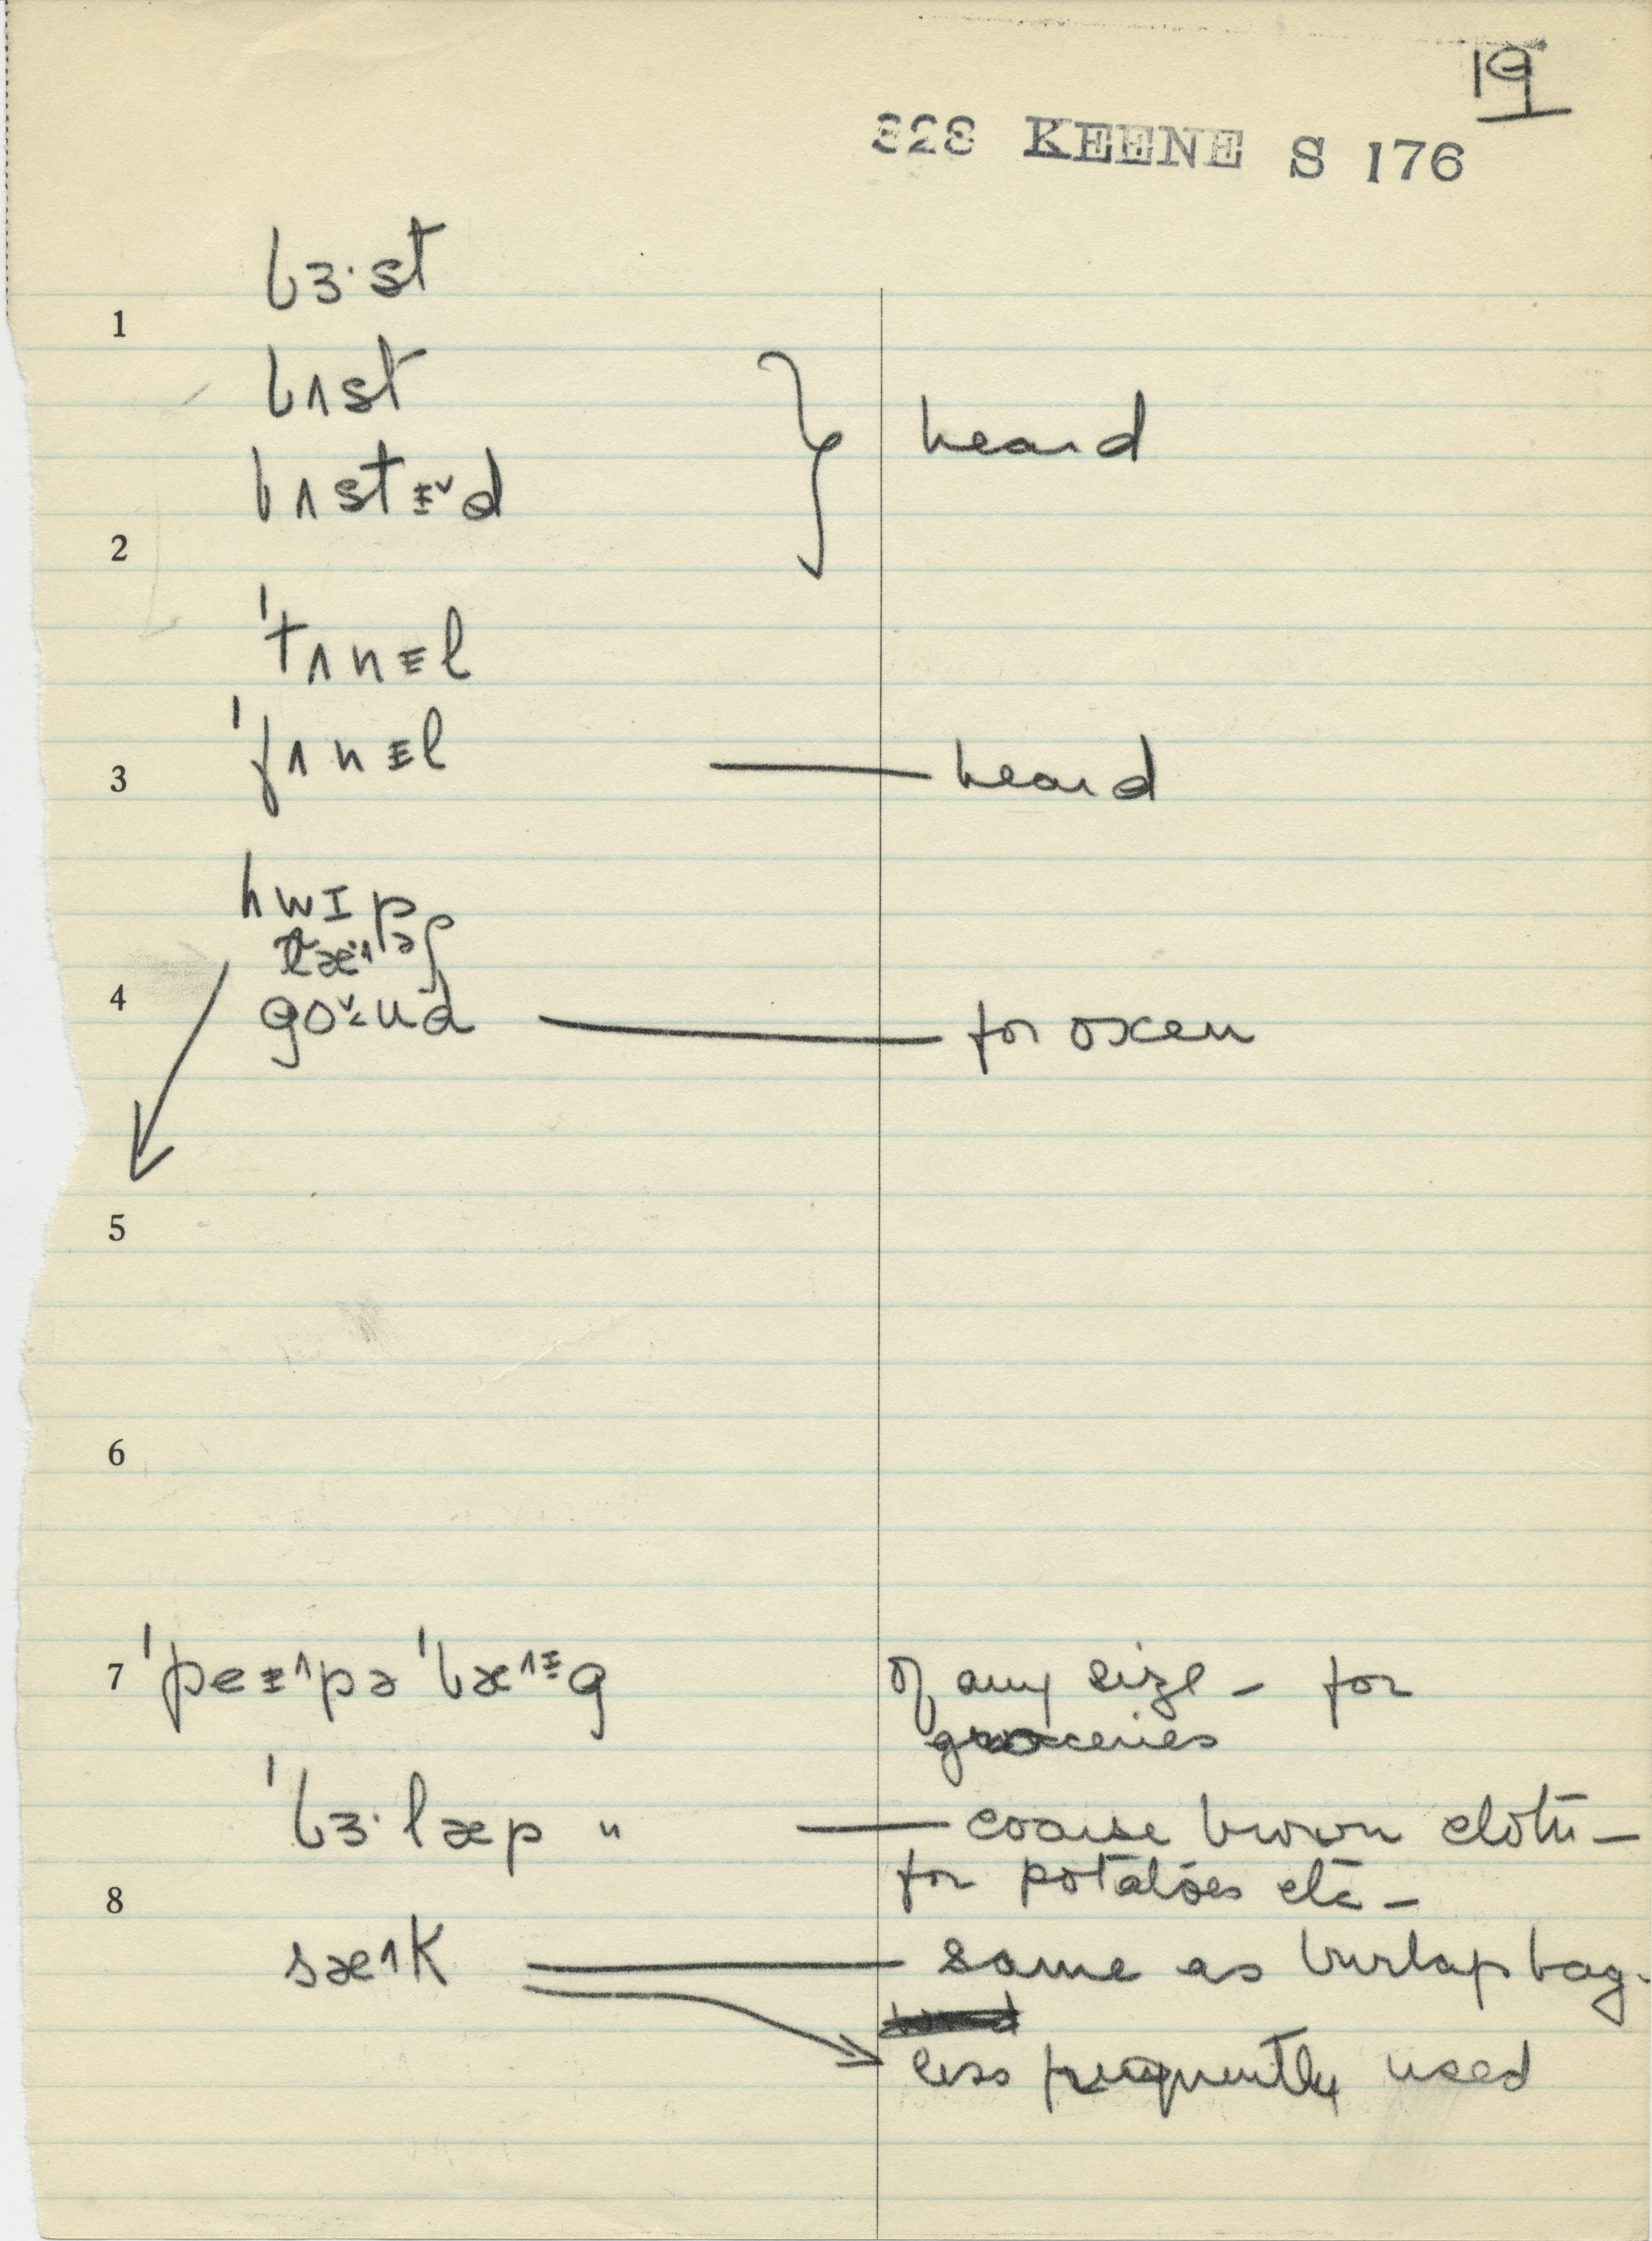 19
328 KEENE S 176
bɜ·st
1
bʌst
heard
bʌstɪ̵ˇd
2
ˈtʌnɪ̵l
ˈfʌnɪ̵l
3
heard
hwɪp
4
goˇ˂ʊd
for oxen
5
6
7 ˈpeɪ̵^pə ˈbæ^ɪ̵g of any size – for
groceries
ˈbɜ·læp " coarse brown cloth –
8 for potatoes etc –
sæ^k same as burlap bag.
less frequently used